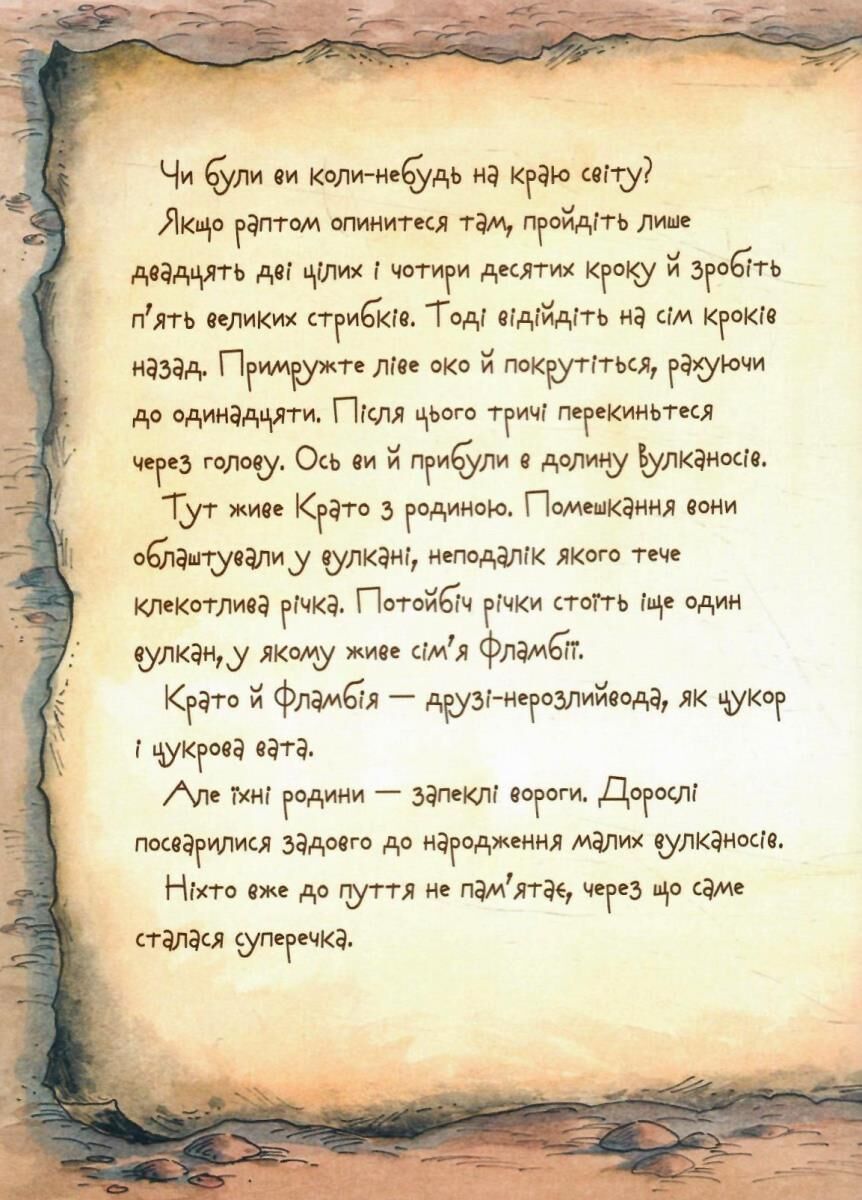 Чи були ви коли-небудь на краю світу?
Якщо раптом опинитеся там, пройдіть лише
двадцять дві цілих і чотири десятих кроку й зробіть
п'ять великих стрибків. Тоді відійдіть на сім кроків
назад. Примружте ліве око й покрутіться, рахуючи
до одинадцяти. Після цього тричі перекиньтеся
через голову. Ось ви й прибули в долину Вулканосів.
Тут живе Крато з родиною. Помешкання вони
облаштували у вулкані, неподалік якого тече
клекотлива річка. Потойбіч річки стоїть іще один
вулкан, у якому живе сім'я Фламбії.
Крато й Фламбія — друзі-нерозлийвода, як цукор
і цукрова вата.
Але їхні родини — запеклі вороги. Дорослі
посварилися задовго до народження малих вулканосів.
Ніхто вже до пуття не пам'ятає, через що саме
сталася суперечка.